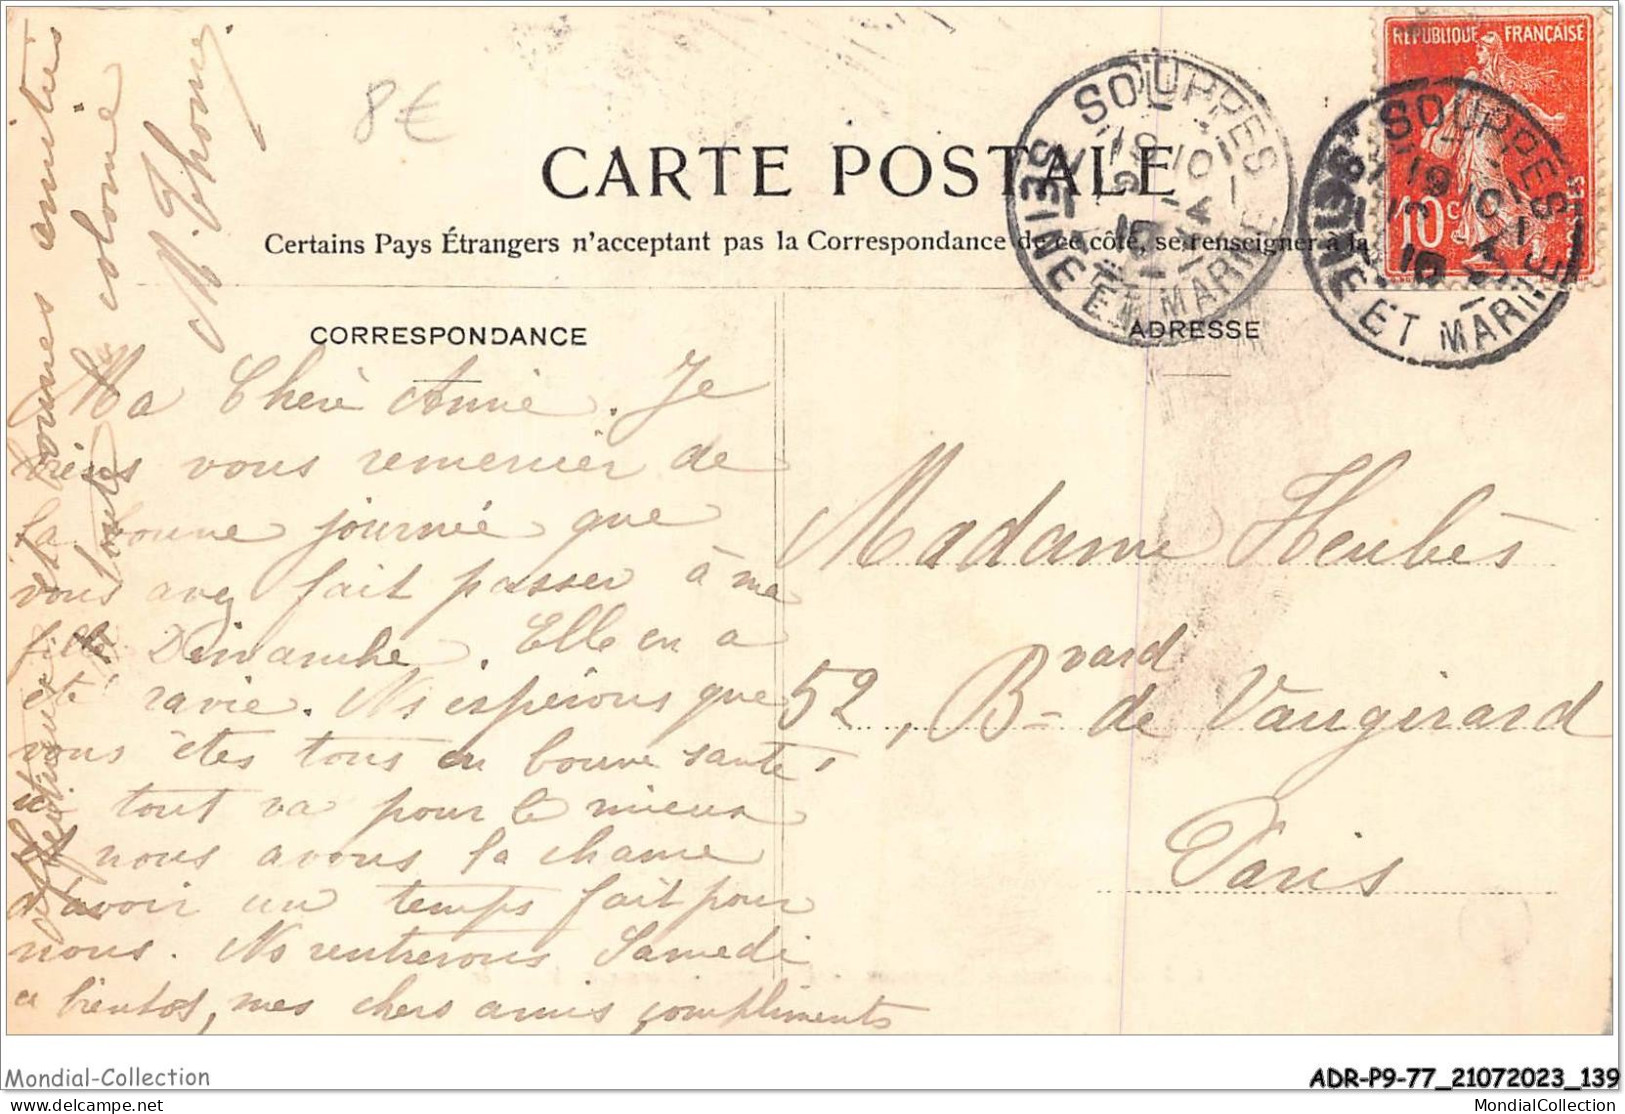 8€
RÉPUBLIQUE FRANÇAISE
10c
CARTE POSTALE
Certains Pays Étrangers n'acceptant pas la Correspondance de ce côté, se renseigner à la
SOUPPES
SEINE ET MARNE
19 10
10
SOUPPES
SEINE ET MARNE
19 10
10
CORRESPONDANCE
ADRESSE
Ma Chère Amie. Je
viens vous remercier de
la bonne journée que
vous avez fait passer à ma
fille Dimanche. Elle en a
été ravie. Ns espérons que
vous êtes tous en bonne santé,
ici tout va pour le mieux
et nous avons la chance
d'avoir un temps fait pour
nous. Ns rentrerons Samedi
a bientot, mes chers amis compliments
bonnes amitiés
toute
colonie
M. Thomé
Madame Heubès
52, Bvard de Vaugirard
Paris
Mondial-Collection
ADR-P9-77_21072023_139
delcampe.net
MondialCollection